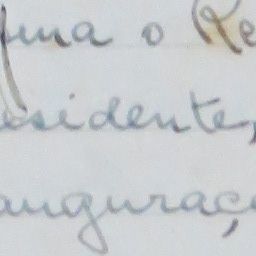 fina o Re
esidente,
auguraçã